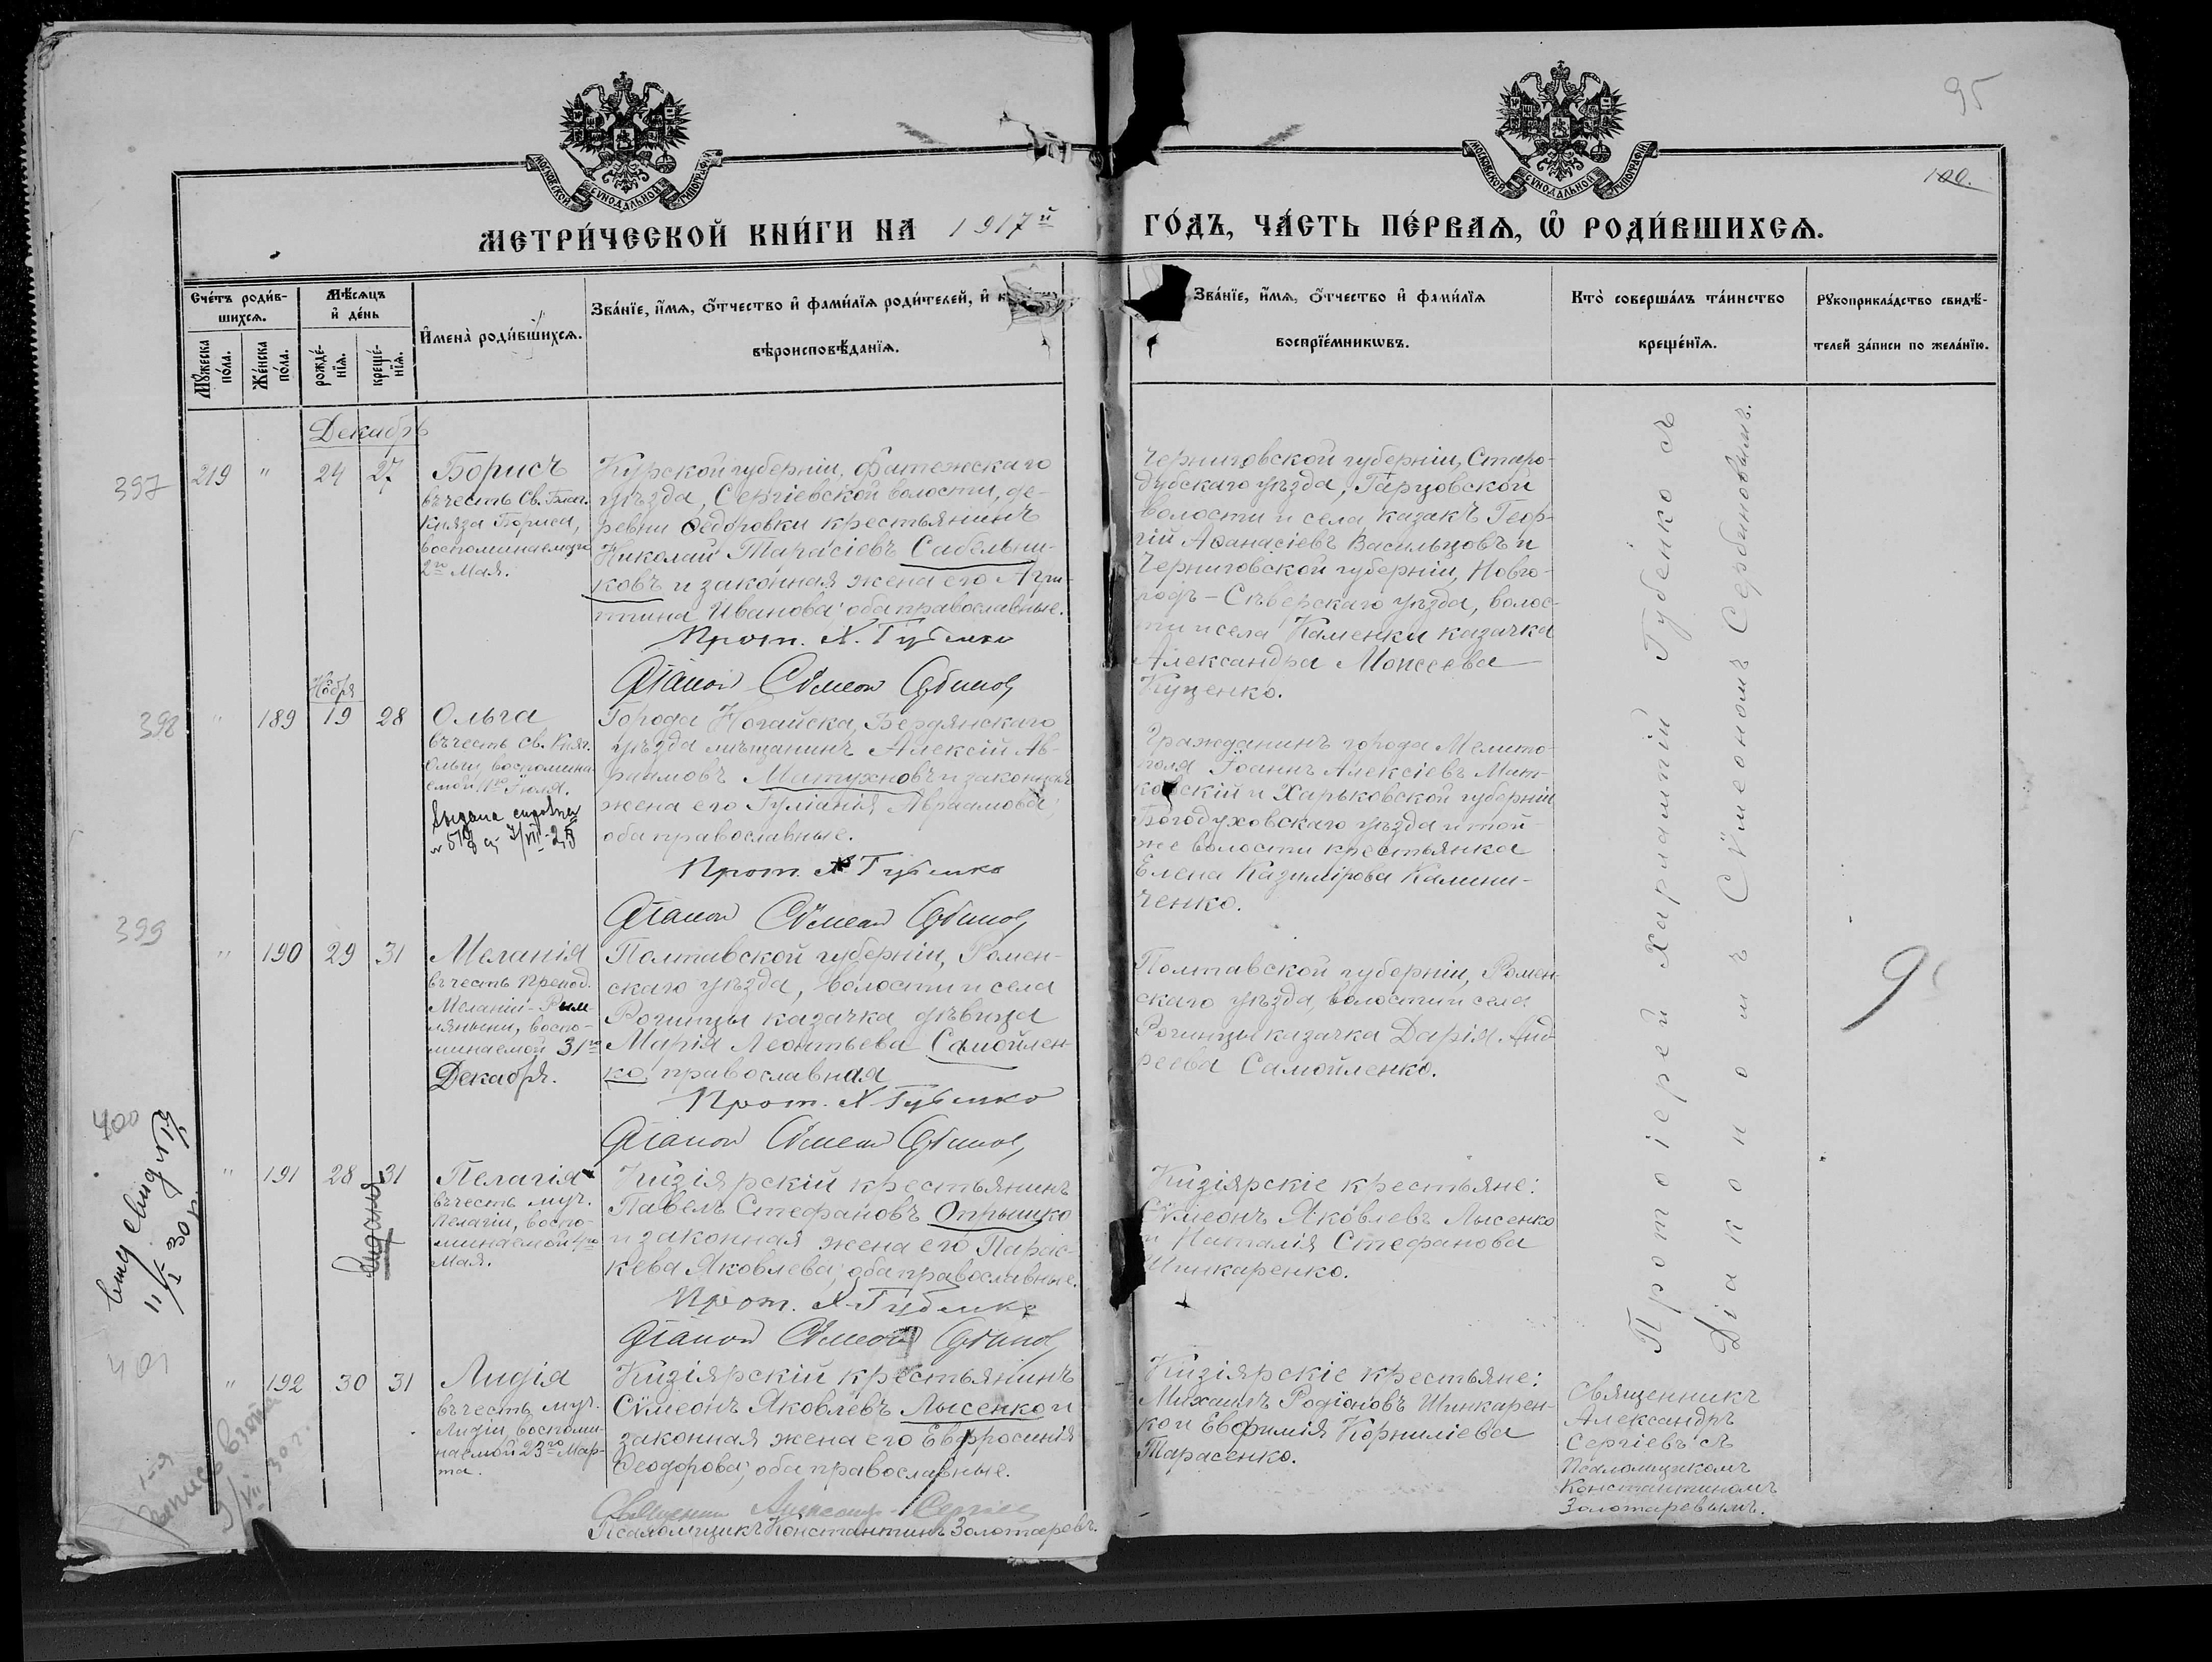 95
100.
МОСКОВСКОЙ СѴНОДАЛЬНОЙ ТИПОГРАФІИ
МОСКОВСКОЙ СѴНОДАЛЬНОЙ ТИПОГРАФІИ
МЕТРИ́ЧЕСКОЙ КНИ́ГИ НА 1917й
ГО́ДЪ, ЧА́СТЬ ПЕ́РВАѦ, Ѽ РОДИ́ВШИХСѦ.
Сче́тъ роди́в-
шихсѧ.
Мꙋ́жеска
по́ла.
Же́нска
по́ла.
Мѣ́сѧцъ
и҆ де́нь
рожде́-
нїѧ.
креще́-
нїѧ.
И҆мена̀ роди́вшихсѧ.
Зва́нїе, и҆́мѧ, ѻ҆́тчество и҆ фами́лїѧ роди́телей, и҆
вѣроисповѣ́данїѧ.
Зва́нїе, и҆́мѧ, ѻ҆́тчество и҆ фами́лїѧ
воспрїе́мникѡвъ.
Кто̀ соверша́лъ та́инство
креще́нїѧ.
Рꙋкоприкла́дство свидѣ́-
телей за́писи по жела́нїю.
Декабрь
397
219 " 24 27
Борисъ
въ честь Св. Благ.
Князя Бориса,
воспоминаемаго
2го Мая.
Курской губерніи, Фатежскаго
уѣзда, Сергіевской волости, де-
ревни Ѳедоровки крестьянинъ
Николай Тарасіевъ Сабельни-
ковъ и законная жена его Агри-
пина Иванова; оба православные.
Прот. Х. Губенко
Діаконъ Сѵмеонъ Сербиновъ
Черниговской губерніи, Старо-
дубскаго уѣзда, Гарцовской
волости и села казакъ Геор-
гій Аѳанасіевъ Васильцовъ и
Черниговской губерніи, Новго-
родъ-Сѣверскаго уѣзда, волос-
ти и села Каменки казачка
Александра Моисеева
Куценко.
Ноября
398
" 189 19 28
Ольга
въ честь св. Княг.
Ольги, воспомина-
емой 11го Іюля.
Выдана справка
№ 518
Города Ногайска, Бердянскаго
уѣзда мѣщанинъ Алексій Ав-
раамовъ Митухновъ и законная
жена его Іуліанія Авраамова;
оба православные.
Прот. Х Губенко
Діаконъ Сѵмеонъ Сербиновъ
Гражданинъ города Мелито-
поля Іоаннъ Алексіевъ Мат-
ковскій и Харьковской губерніи
Богодуховскаго уѣзда и той-
же волости крестьянка
Елена Казимірова Калини-
ченко.
399
" 190 29 31
Меланія
въ честь препод.
Меланіи-Рим-
ляныни, воспо-
минаемой 31го
Декабря.
Полтавской губерніи, Ромен-
скаго уѣзда, волости и села
Рогинцы казачка дѣвица
Марія Леонтьева Самойлен-
ко, православная
Прот. Х Губенко
Діаконъ Сѵмеонъ Сербиновъ
Полтавской губерніи, Ромен-
скаго уѣзда, волости и села
Рогинцы казачка Дарія Анд-
реева Самойленко.
400
" 191 28 31
Пелагія
въ честь муч.
Пелагіи, воспо-
минаемой 4го
Мая.
Кизіярскій крестьянинъ
Павелъ Стефановъ Отрышко
и законная жена его Парас-
кева Яковлева; оба православные.
Прот. Х. Губенко
Діаконъ Сѵмеонъ Сербиновъ
Кизіярскіе крестьяне:
Сѵмеонъ Яковлевъ Лысенко
и Наталія Стефанова
Шинкаренко.
401
" 192 30 31
Лидія
въ честь муч.
Лидіи, воспоми-
наемой 23го Мар-
та.
Кизіярскій крестьянинъ
Сѵмеонъ Яковлевъ Лысенко и
законная жена его Евфросинія
Ѳеодорова; оба православные.
Священникъ Александръ Сергіевъ
Псаломщикъ Константинъ Золотаревъ.
Кизіярскіе крестьяне:
Михаилъ Родіоновъ Шинкарен-
ко и Евфимія Корниліева
Тарасенко.
Протоіерей Харлампій Губенко съ
Діакономъ Сѵмеономъ Сербиновымъ.
Священникъ
Александръ
Сергіевъ съ
Псаломщикомъ
Константиномъ
Золотаревымъ.